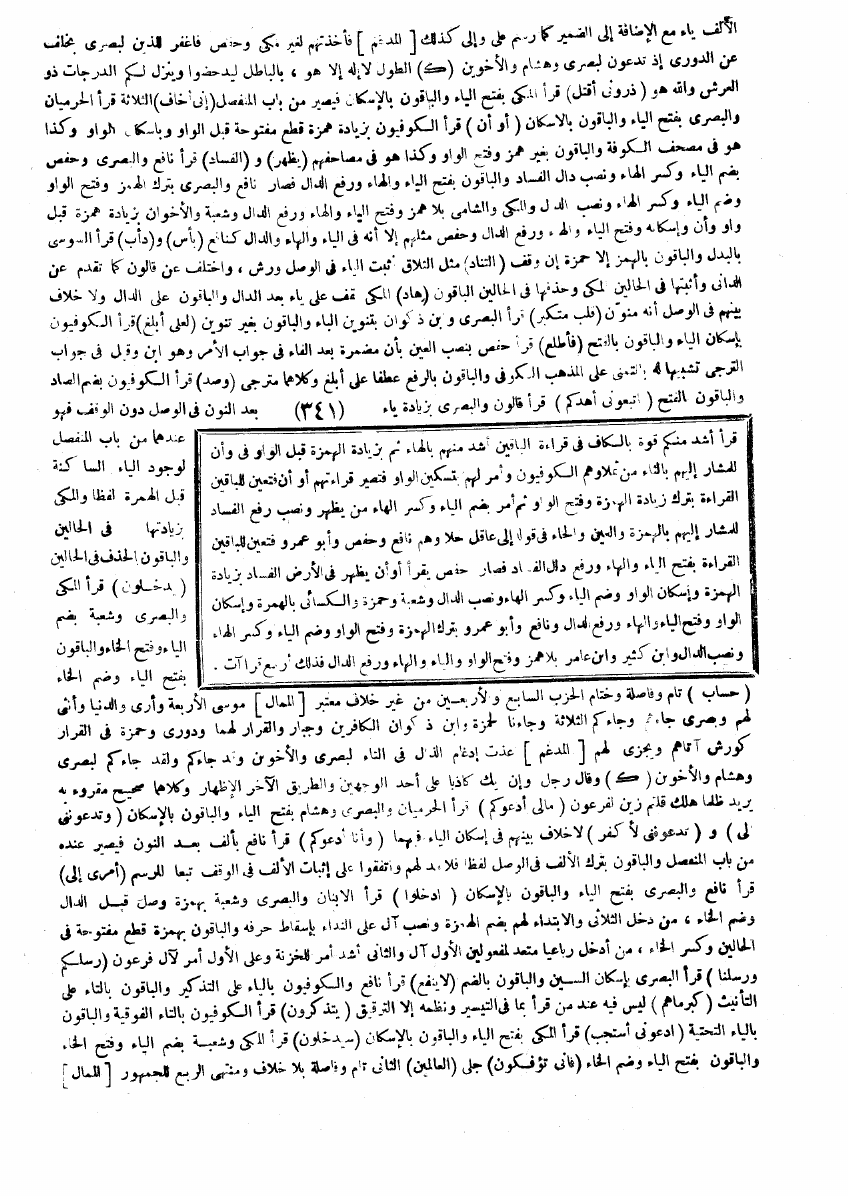 الألف ياء مع الإضافة إلى الضمير كما رسم على وإلى كذلك [ المدغم ] فأخذتهم لغير مكى وحفص فاغفر للذين لبصرى بخلف
عن الدورى إذ تدعون لبصرى وهشام والأخوين (ك) الطول لا إله إلا هو ، بالباطل ليدحضوا وينزل لكم الدرجات ذو
العرش والله هو ( ذرونى أقتل) قرأ المكى بفتح الياء والباقون بالإسكان فيصير من باب المنفصل (إنى أخاف) الثلاثة قرأ الحرميان
والبصرى بفتح الياء والباقون بالاسكان ( أو أن ) قرأ الكوفيون بزيادة همزة قطع مفتوحة قبل الواو وباسكان الواو وكذا
هو فى مصحف الكوفة والباقون بغير همز وفتح الواو وكذا هو فى مصاحفهم (يظهر) و (الفساد) قرأ نافع والبصرى وحفص
بضم الياء وكسر الهاء ونصب دال الفساد والباقون بفتح الياء والهاء ورفع الدال فصار نافع والبصرى بترك الهمز وفتح الواو
وضم الياء وكسر الهاء ونصب الدال والمكى والشامى بلا همز وفتح الياء والهاء ورفع الدال وشعبة والأخوان بزيادة همزة قبل
واو وأن وإسكانه وفتح الياء والهاء ورفع الدال وحفص مثلهم إلا أنه فى الياء والهاء والدال كنافع (بأس) و(دأب) قرأ السوسى
بالبدل والباقون بالهمز إلا حمزة إن وقف ( التناد) مثل التلاق أثبت الياء فى الوصل ورش ، واختلف عن قالون كما تقدم عن
الدانى وأثبتها فى الحالين المكى وحذفها فى الحالين الباقون (هاد) المكى يقف على ياء بعد الدال والباقون على الدال ولا خلاف
بينهم فى الوصل أنه منون (قلب متكبر) قرأ البصرى وابن ذكوان بتنوين الباء والباقون بغير تنوين (لعلى أبلغ) قرأ الكوفيون
بإسكان الياء والباقون بالفتح (فأطلع) قرأ حفص بنصب العين بأن مضمرة بعد الفاء فى جواب الأمر وهو ابن وقيل فى جواب
الترجى تشبيها له بالتمنى على المذهب الكوفى والباقون بالرفع عطفا على أبلغ وكلاهما مترجى (وصد) قرأ الكوفيون بضم الصاد
والباقون بالفتح ( اتبعونى أهدكم ) قرأ قالون والبصرى بزيادة ياء (٣٤١) بعد النون فى الوصل دون الوقف فهو
عندهما من باب المنفصل
لوجود الياء الساكنة
قبل الهمزة لفظا والمكى
بزيادتها فى الحالين
والباقون الحذف فى الحالين
( يدخلون ) قرأ المكى
والبصرى وشعبة بضم
الياء وفتح الخاء والباقون
بفتح الياء وضم الخاء
قرأ أشد منكم قوة بالكاف فى قراءة الباقين أشد منهم بالهاء ثم بزيادة الهمزة قبل الواو فى وأن
للمشار إليهم بالثاء من ثملا وهم الكوفيون وأمر لهم بتسكين الواو فتصير قراءتهم أو أن فتعين للباقين
القراءة بترك زيادة الهمزة وفتح الواو ثم أمر بضم الياء وكسر الهاء من يظهر ونصب رفع الفساد
للمشار إليهم بالهمزة والعين والحاء فى قوله إلى عاقل حلا وهم نافع وحفص وأبو عمرو فتعين للباقين
القراءة بفتح الياء والهاء ورفع دال الفساد فصار حفص يقرأ أو أن يظهر فى الأرض الفساد بزيادة
الهمزة وإسكان الواو وضم الياء وكسر الهاء ونصب الدال وشعبة وحمزة والكسائى بالهمزة وإسكان
الواو وفتح الياء والهاء ورفع الدال ونافع وأبو عمرو بترك الهمزة وفتح الواو وضم الياء وكسر الهاء
ونصب الدال وابن كثير وابن عامر بلا همز وفتح الواو والياء والهاء ورفع الدال فذلك أربع قراآت .
( حساب ) تام وفاصلة وختام الحزب السابع والأربعين من غير خلاف معتبر [ الممال ] موسى الأربعة وأرى والدنيا وأنثى
لهم وبصرى جاءهم وجاءكم الثلاثة وجاءنا لحمزة وابن ذكوان الكافرين وجبار والقرار لهما ودورى وحمزة فى القرار
كورش آتاهم ويجزى لهم [ المدغم ] عذت إدغام الذال فى التاء لبصرى والأخوين وقد جاءكم ولقد جاءكم لبصرى
وهشام والأخوين ( ك ) وقال رجل وإن يك كاذبا على أحد الوجهين والطريق الآخر الإظهار وكلاهما صحيح مقروء به
يريد ظلما هلك قلتم زين لفرعون ( مالى أدعوكم ) قرأ الحرميان والبصرى وهشام بفتح الياء والباقون بالإسكان ( وتدعوننى
إلى ) و ( تدعوننى لأكفر ) لاخلاف بينهم فى إسكان الياء فيهما ( وأنا أدعوكم ) قرأ نافع بألف بعد النون فيصير عنده
من باب المنفصل والباقون بترك الألف فى الوصل لفظا فلا مد لهم واتفقوا على إثبات الألف فى الوقف تبعا للرسم (أمرى إلى)
قرأ نافع والبصرى بفتح الياء والباقون بالإسكان ( ادخلوا ) قرأ الابنان والبصرى وشعبة بهمزة وصل قبل الدال
وضم الخاء ، من دخل الثلاثى والابتداء لهم بضم الهمزة ونصب آل على النداء بإسقاط حرفه والباقون بهمزة قطع مفتوحة فى
الحالين وكسر الخاء ، من أدخل رباعيا متعد لمفعولين الأول آل والثانى أشد أمر للخزنة وعلى الأول أمر لآل فرعون (رسلكم
ورسلنا ) قرأ البصرى بإسكان السين والباقون بالضم (لاينفع) قرأ نافع والكوفيون بالياء على التذكير والباقون بالتاء على
التأنيث (كبر ماهم) ليس فيه عند من قرأ بما فى التيسير ونظمه إلا الترقيق ( يتذكرون) قرأ الكوفيون بالتاء الفوقية والباقون
بالياء التحتية ( ادعونى أستجب) قرأ المكى بفتح الياء والباقون بالإسكان (سيدخلون) قرأ المكى وشعبة بضم الياء وفتح الخاء
والباقون بفتح الياء وضم الخاء (فأنى تؤفكون) جلى (العالمين) الثانى تام وفاصلة بلا خلاف ومنتهى الربع للجمهور [ الممال ]